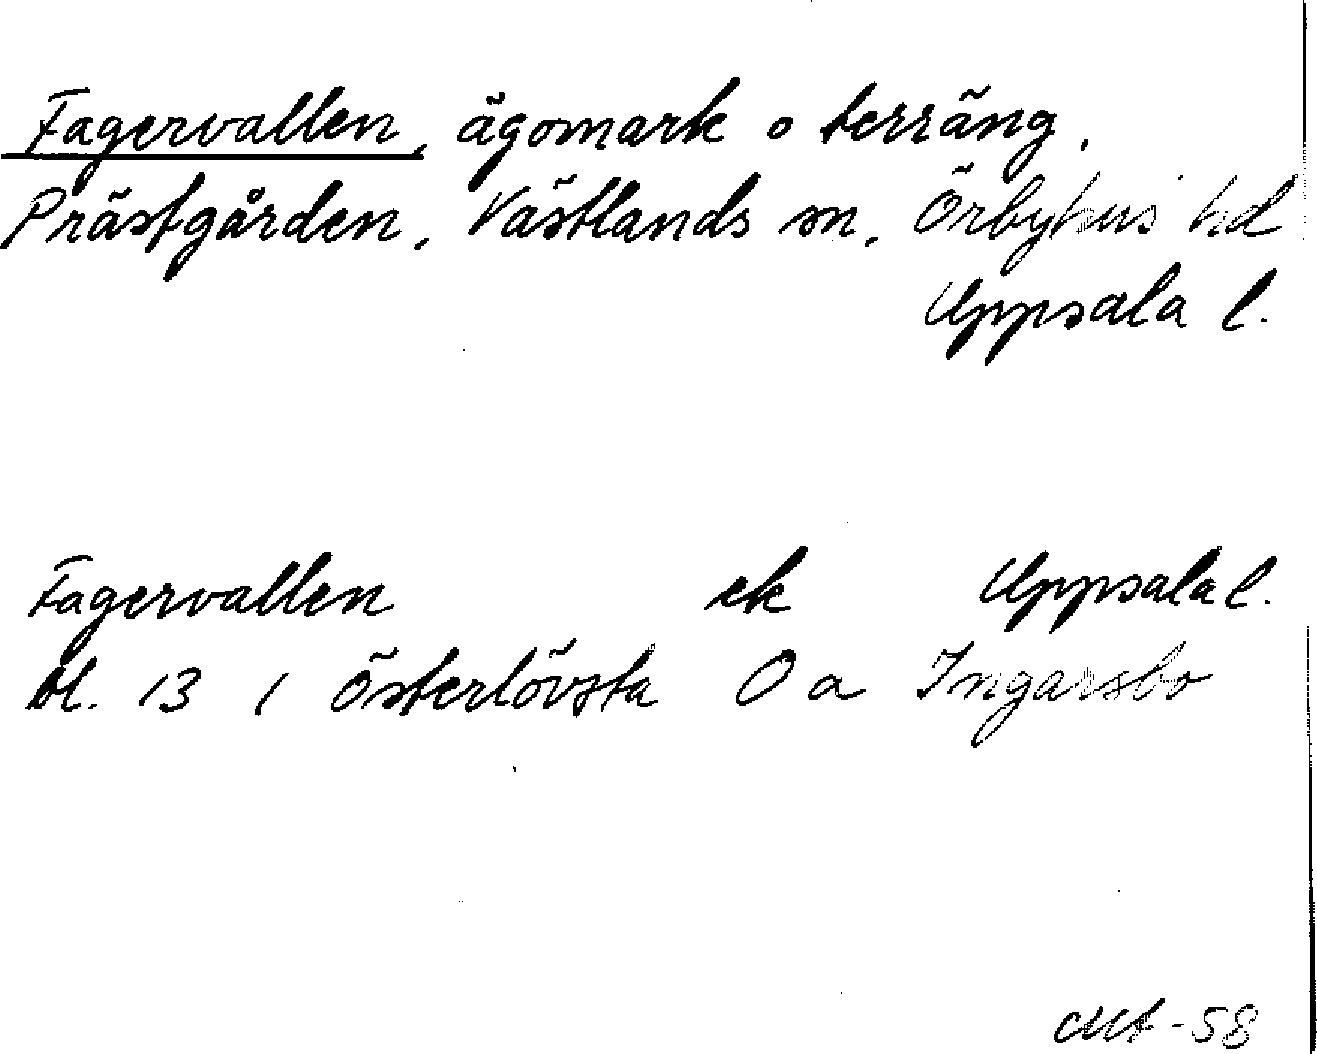 Fagervallen, ägomark o terräng.
Prästgården, Västlands sn, Örbyhus hd
Uppsala l.
Fagervallen ek Uppsala l.
bl. 13 1 Österlövsta O a Ingarsbo
-58